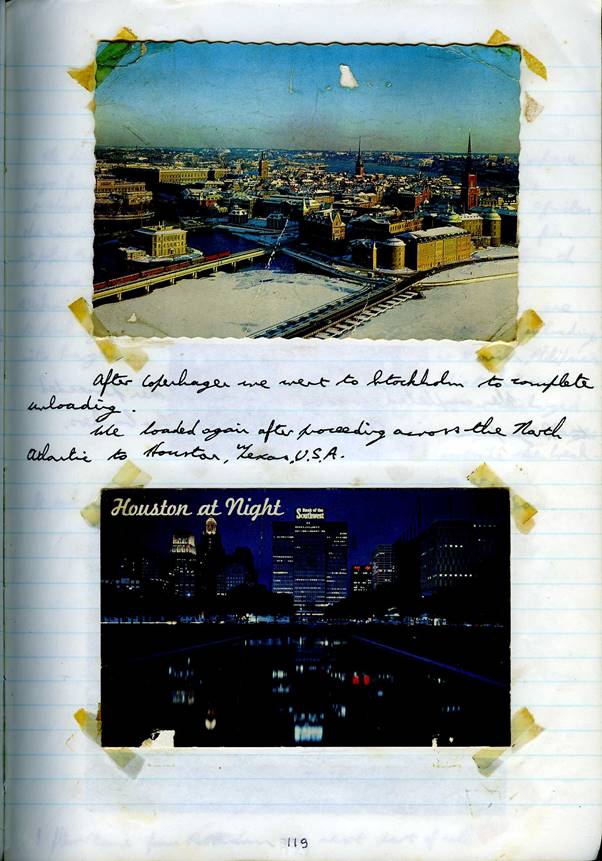 After Copenhagen we went to Stockholm to complete
unloading.
We loaded again after proceeding across the North
Atlantic to Houston, Texas, U.S.A.
Houston at Night
Bank of the
Southwest
119